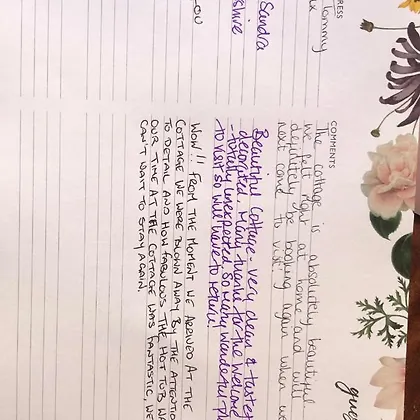 gues
RESS
COMMENTS
Tommy
The cottage is absolutely beautiful -
We felt right at home and will
definitely be booking again when we
next come to visit!
Sandra
shire
Beautiful Cottage very clean & tastef
decorated. Many thanks for the welcome
- totally unexpected. So many wonderful pl
to visit so will have to return!
WOW!! FROM THE MOMENT WE ARRIVED AT THE
COTTAGE WE WERE BLOWN AWAY BY THE ATTENTIO
TO DETAIL AND HOW FABULOUS THE HOT TUB W
OUR TIME AT THE COTTAGE WAS FANTASTIC, WE
CAN'T WAIT TO STAY AGAIN.